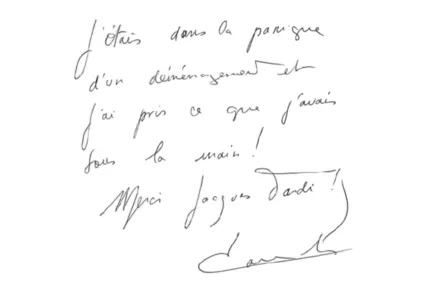 J'étais dans la panique
d'un déménagement et
j'ai pris ce que j'avais
sous la main !
Merci Jacques Dardi !